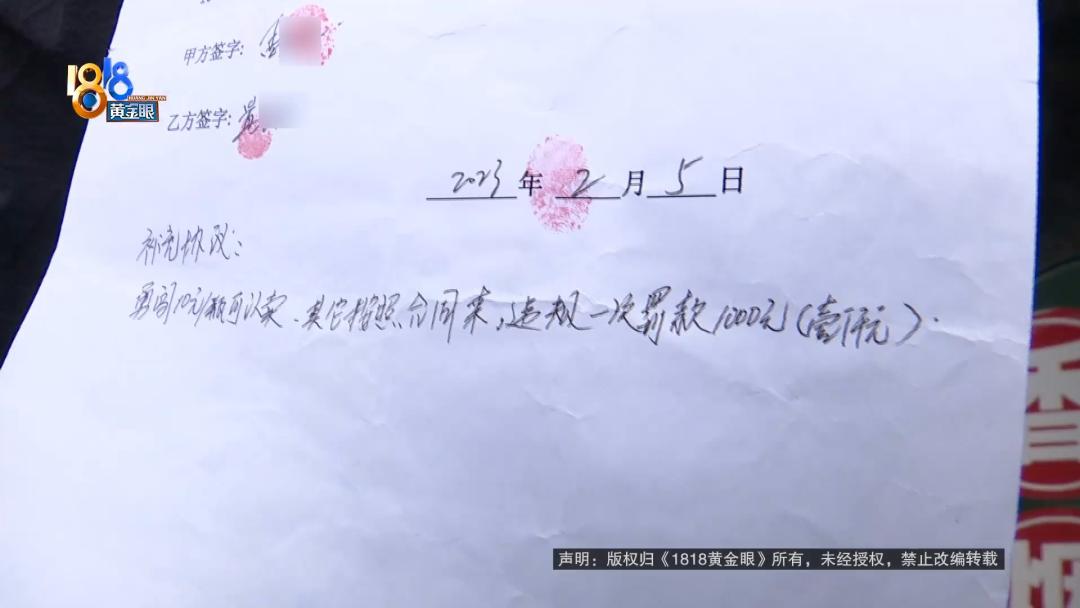 1818
HUANG JIN YAN
黄金眼
甲方签字:
乙方签字:
2023年 2 月 5 日
补充协议:
勇闯10元/瓶可以卖、其它按照合同来,违规一次罚款1000元(壹仟元).
声明:版权归《1818黄金眼》所有,未经授权,禁止改编转载